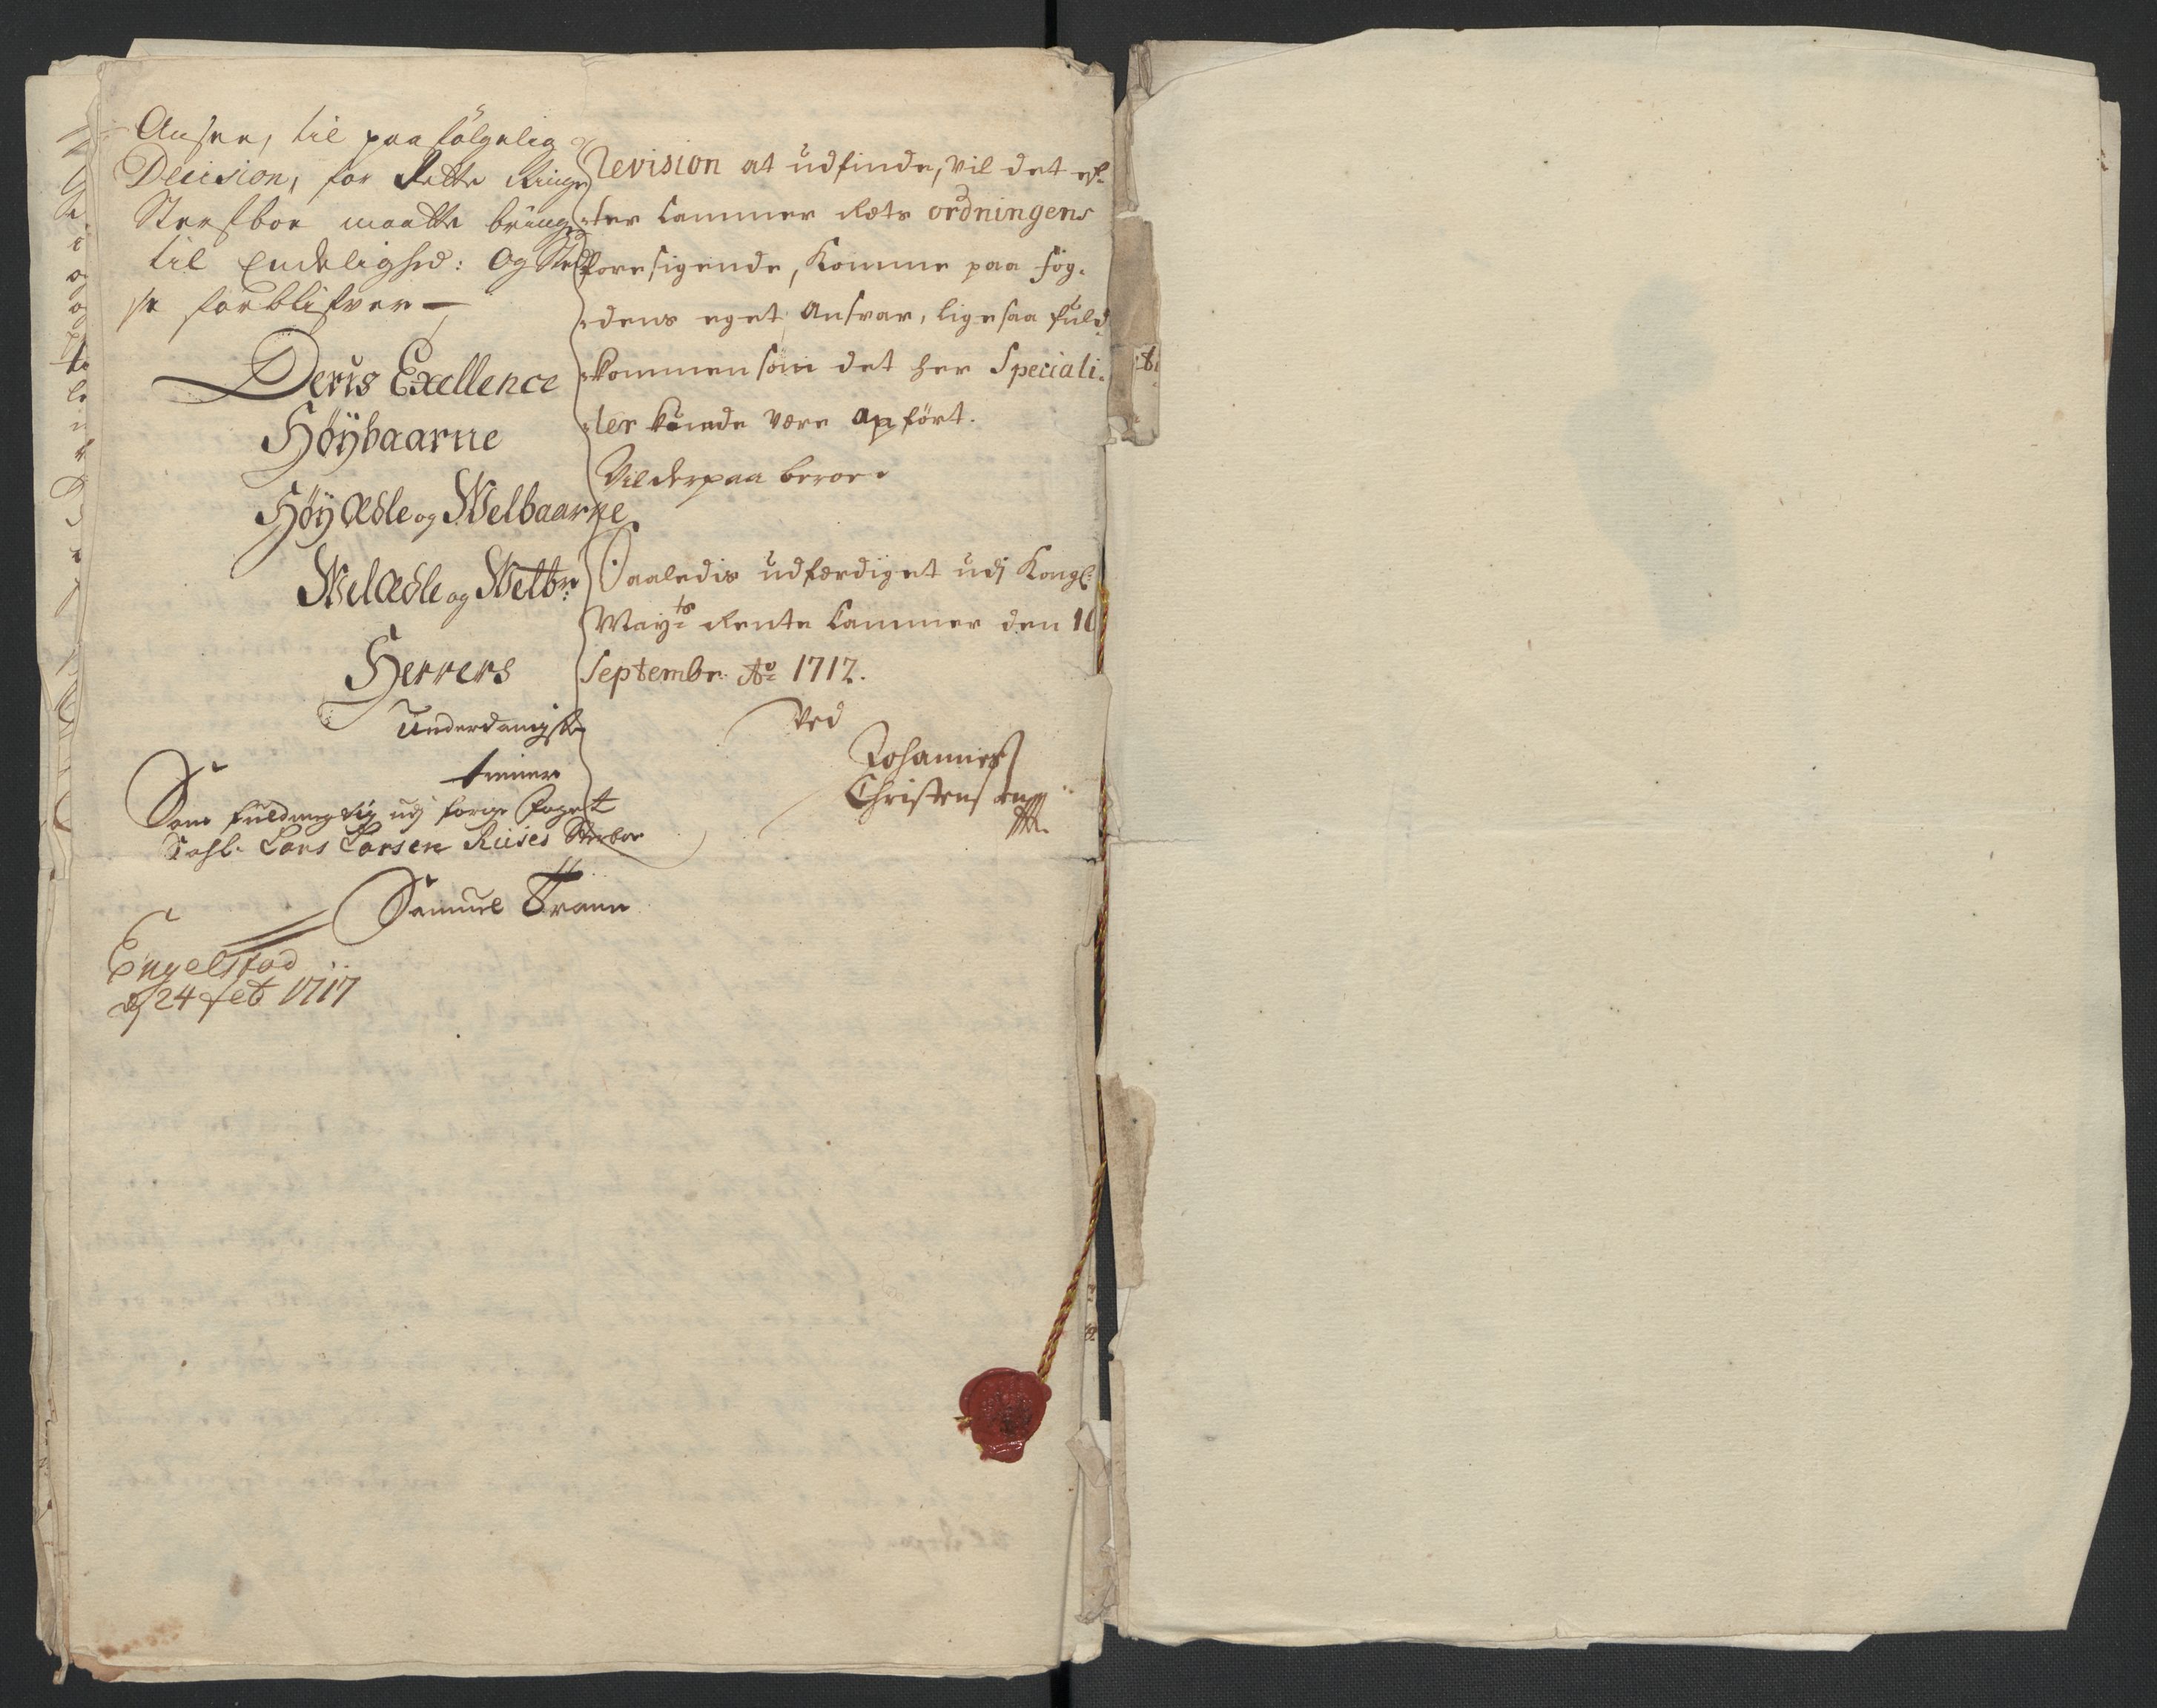 Ansee, til paafölgelig
Decision, for dette Ringe
Sterfboe maatte bringes
til Endelighed: Og Sted-
se forblifver
Deris Excellence
Höÿbaarne
Höÿ Ædle og Welbaarne
Wel Ædle og Welbr:
Herrers
Underdanigste
tienner
Som fuldmegtig udj forige Foget
Sahl. Lars Larsen Riises Sterboe
Samuel Trane
Engelstad
d 24 feb 1717
Revision at udfinde, vil det ef-
ter Cammer Rets ordningens
foresigende, Komme paa fog-
dens eget Ansvar, ligesaa fuld
kommen som det her Speciali-
ter kunde være anført.
Vil derpaa beroe.
Saaledis udfærdiget udj Kongl:
Mayts Rente Cammer den 10
Septembr. Ao 1712.
ved
Johannes
Christensen